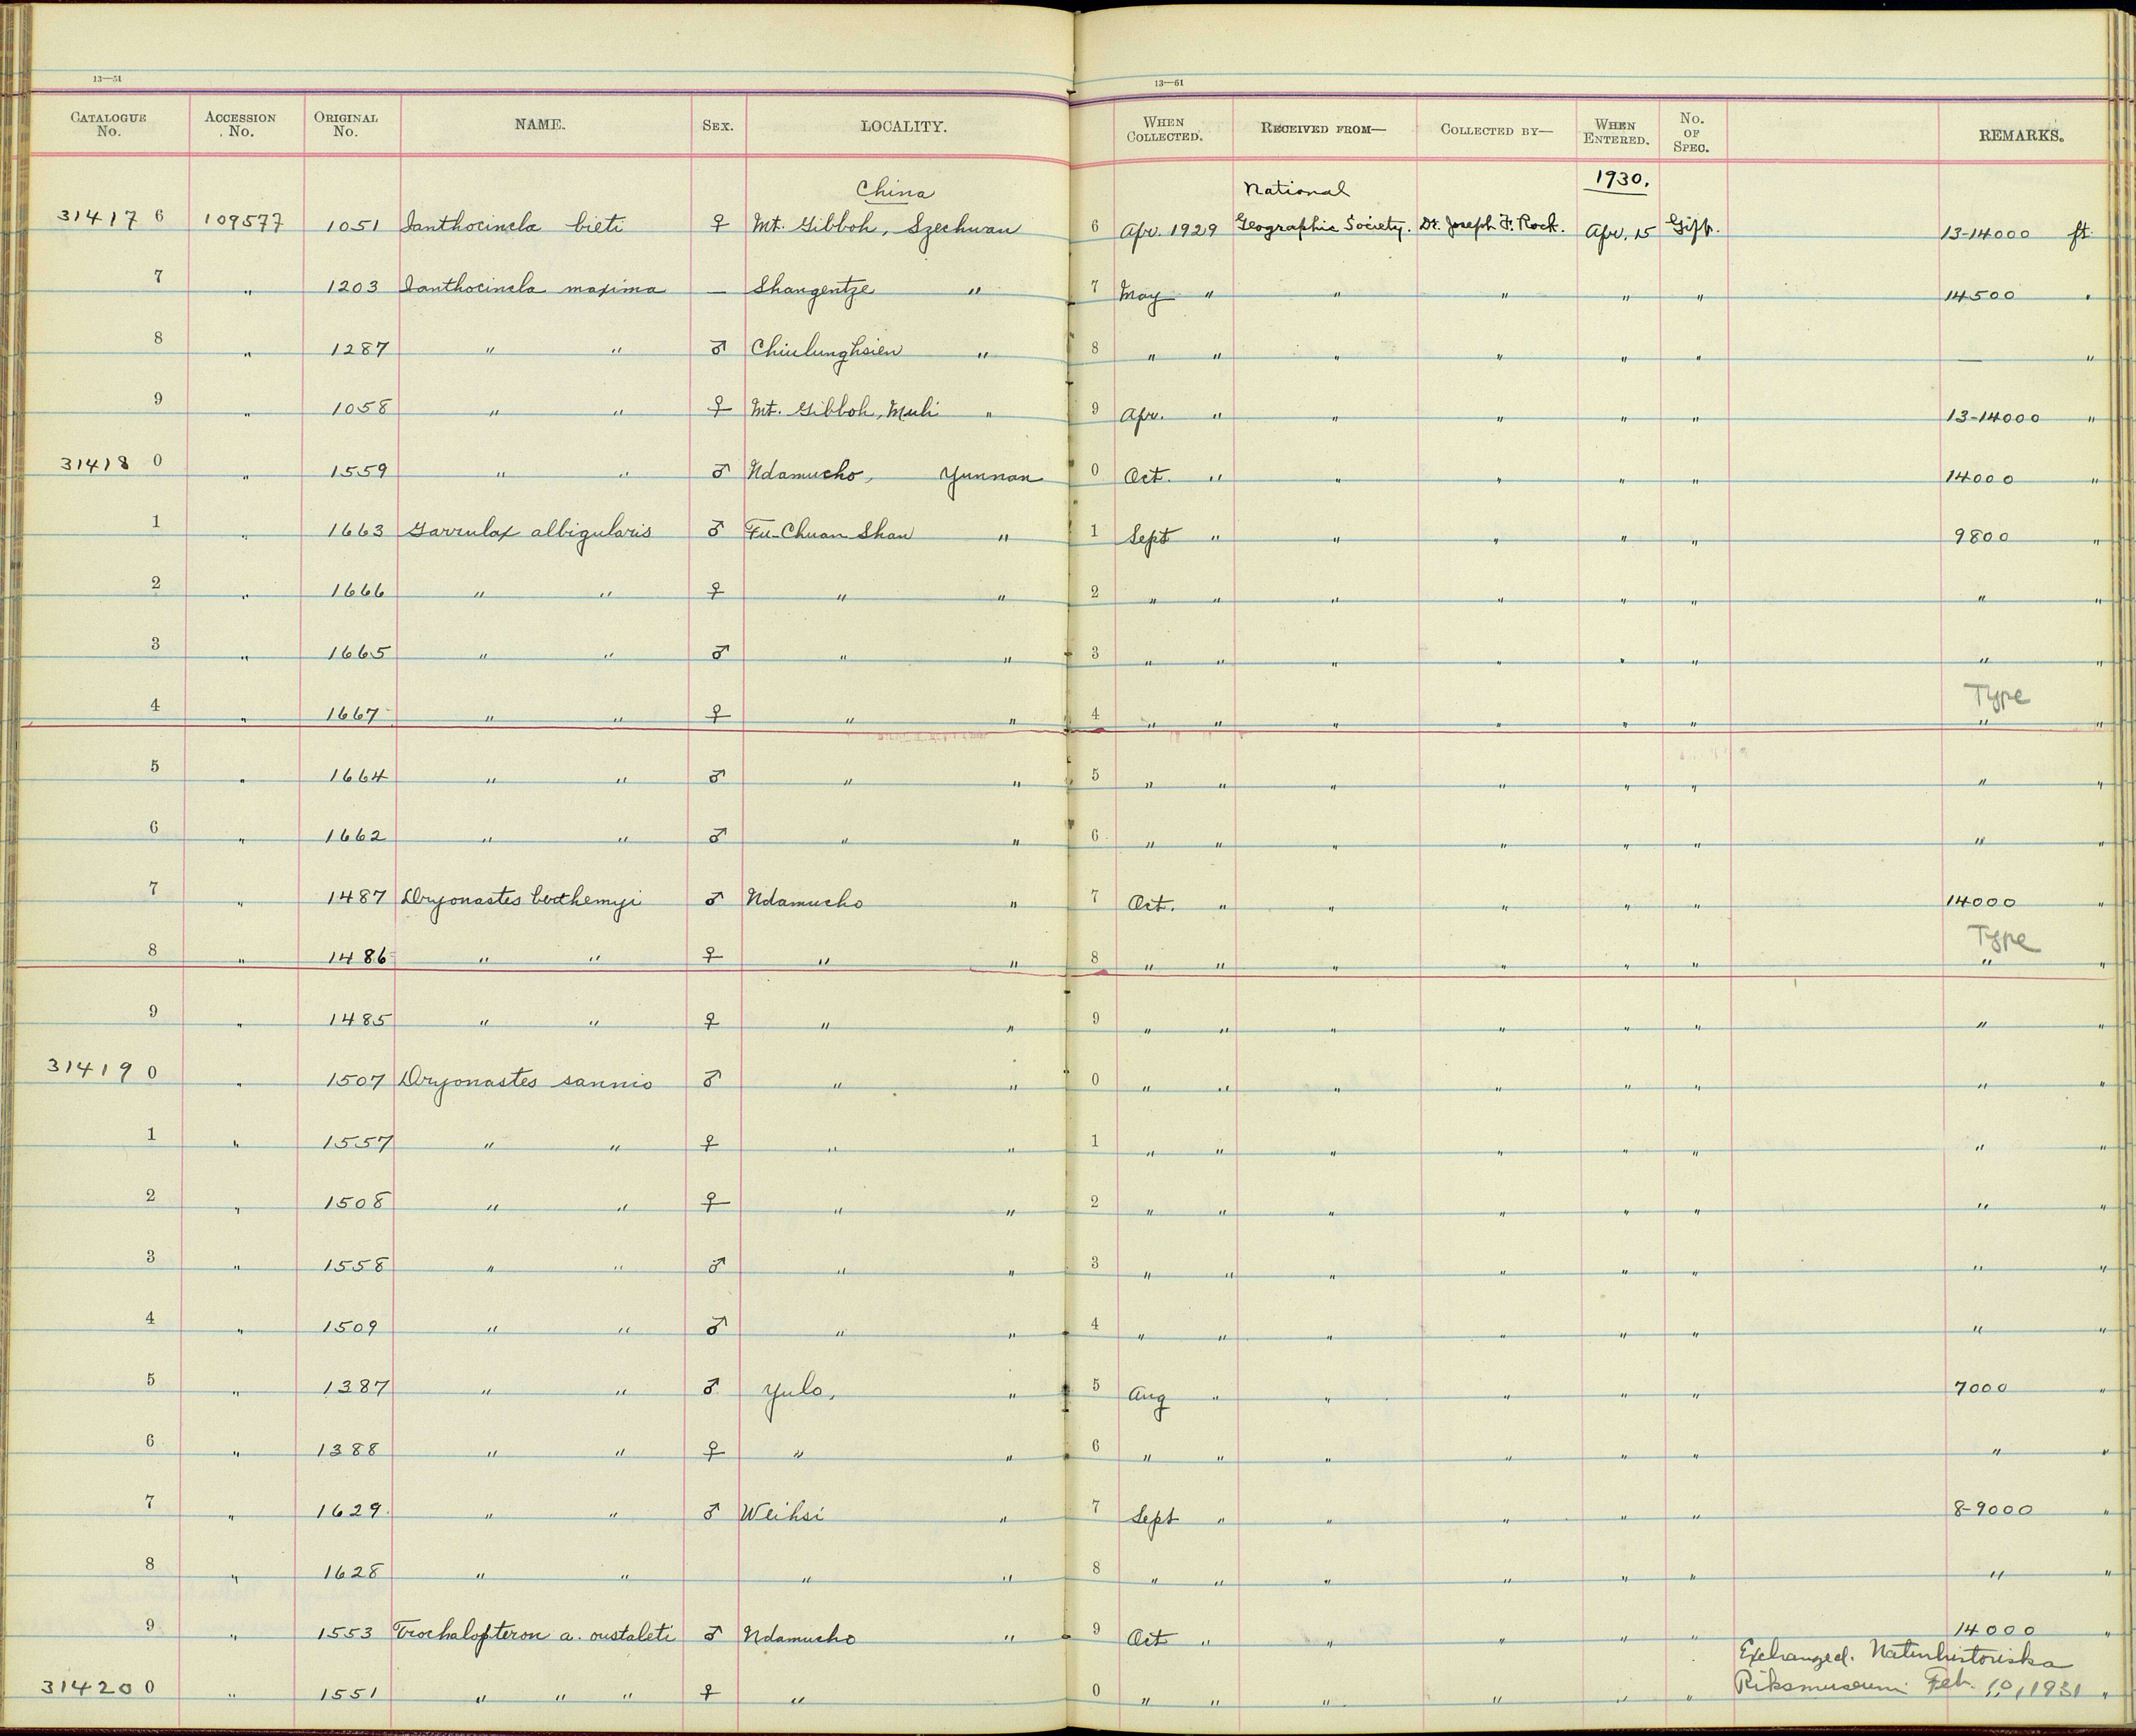 13—51
13—61
CATALOGUE No. ACCESSION No. ORIGINAL No. NAME. SEX. LOCALITY. WHEN COLLECTED. RECEIVED FROM— COLLECTED BY— WHEN ENTERED. No. OF SPEC. REMARKS.
China National 1930.
31417 6 109577 1051 Ianthocincla bieti ♀ Mt. Gibboh, Szechwan 6 Apr. 1929 Geographic Society. Dr. Joseph F. Rock. Apr. 15 Gift. 13-14000 ft.
7 " 1203 Ianthocincla maxima — Shangentze " 7 May " " " " " 14500 "
8 " 1287 " " ♂ Chiulunghsien " 8 " " " " " " — "
9 " 1058 " " ♀ Mt. Gibboh, Muli " 9 Apr. " " " " " 13-14000 "
31418 0 " 1559 " " ♂ Ndamucho, Yunnan 0 Oct. " " " " " 14000 "
1 " 1663 Garrulax albigularis ♂ Fu-Chuan Shan " 1 Sept " " " " " 9800 "
2 " 1666 " " ♀ " " 2 " " " " " " " "
3 " 1665 " " ♂ " " 3 " " " " " " " "
Type
4 " 1667 " " ♀ " " 4 " " " " " " " "
5 " 1664 " " ♂ " " 5 " " " " " " " "
6 " 1662 " " ♂ " " 6 " " " " " " " "
7 " 1487 Dryonastes berthemyi ♂ Ndamucho " 7 Oct. " " " " " 14000 "
Type
8 " 1486 " " ♀ " " 8 " " " " " " " "
9 " 1485 " " ♀ " " 9 " " " " " " " "
31419 0 " 1507 Dryonastes sannio ♂ " " 0 " " " " " " " "
1 " 1557 " " ♀ " " 1 " " " " " " " "
2 " 1508 " " ♀ " " 2 " " " " " " " "
3 " 1558 " " ♂ " " 3 " " " " " " " "
4 " 1509 " " ♂ " " 4 " " " " " " " "
5 " 1387 " " ♂ Yulo, " 5 Aug " " " " " 7000 "
6 " 1388 " " ♀ " " 6 " " " " " " " "
7 " 1629 " " ♂ Weihsi " 7 Sept " " " " " 8-9000 "
8 " 1628 " " " " 8 " " " " " " " "
9 " 1553 Trochalopteron a. oustaleti ♂ Ndamucho " 9 Oct " " " " " 14000 "
Exchanged. Naturhistoriska
31420 0 " 1551 " " " ♀ " 0 " " " " " " Riksmuseum Feb. 10, 1931 "